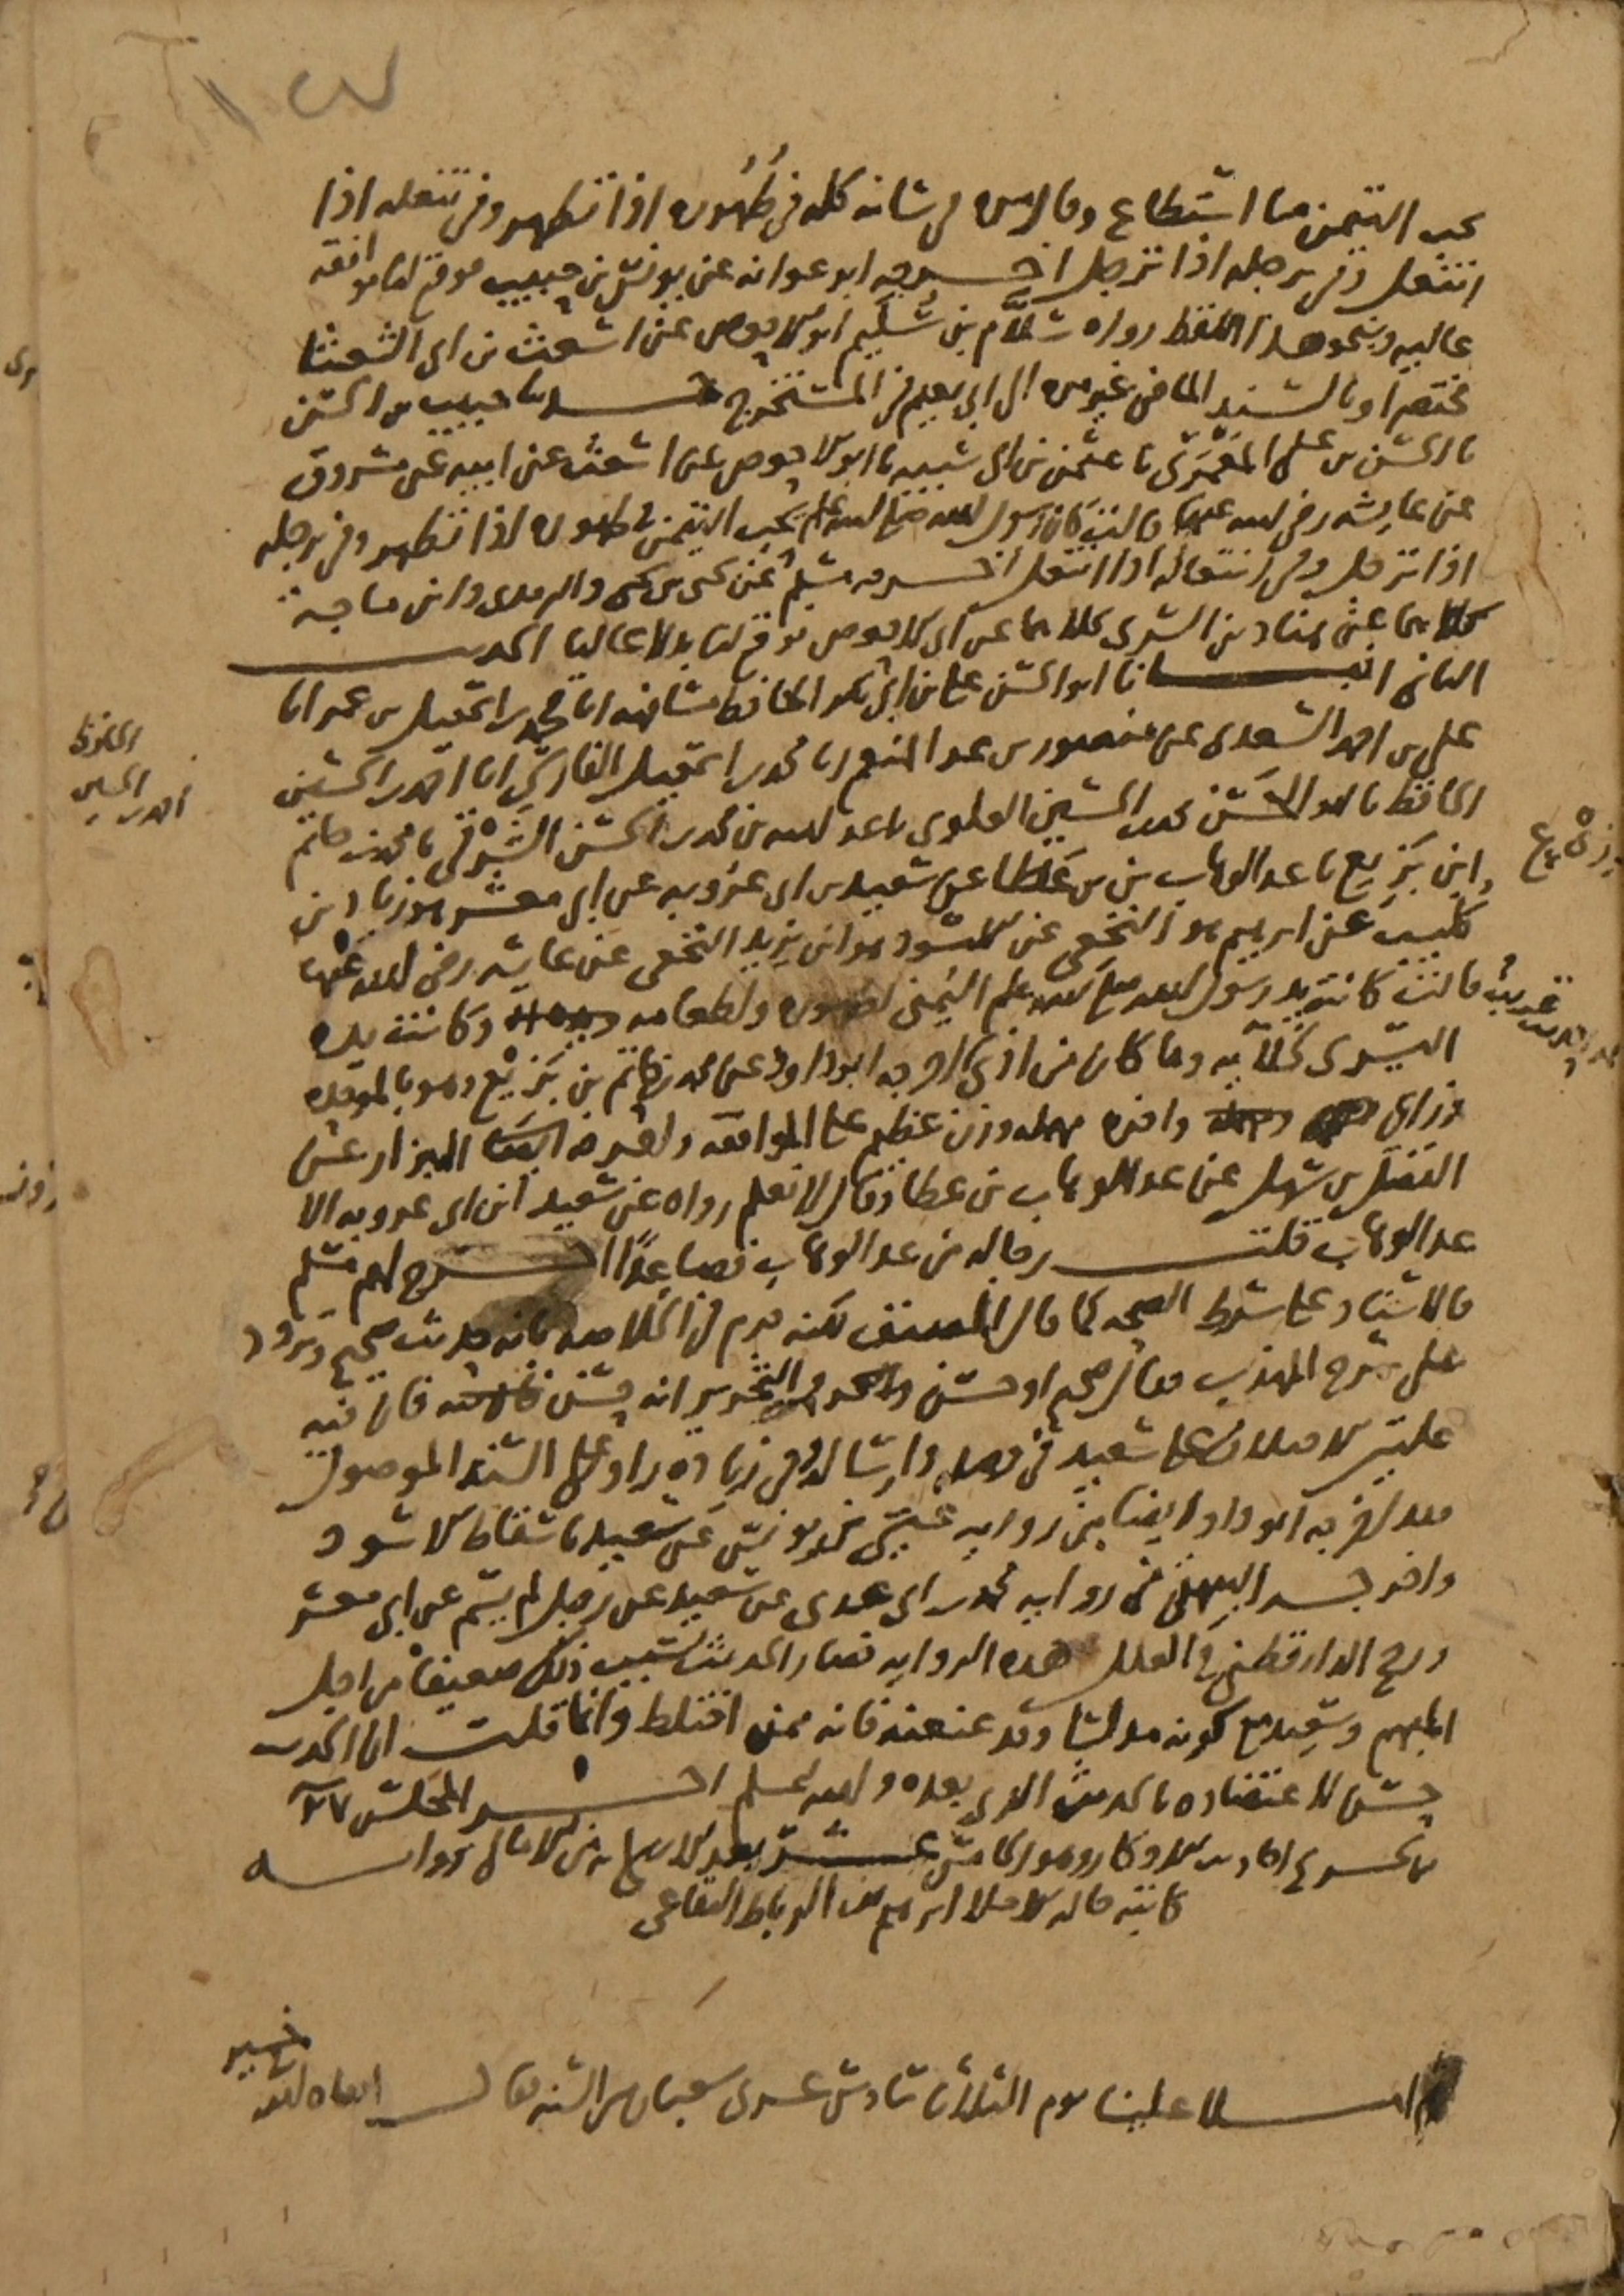 يحب التيمن ما استطاع وقال مرة في شأنه كله في طُهُوره اذا تطهر وفي تنعله اذا
انتعل وفي ترجله اذا ترجل اخرجه ابو عوانه عن يونس بن حبيب فوقع لنا موافقه
عاليه وبنحو هذا اللفظ رواه سلّام بن سُليم ابو الاحوص عن اشعث بن ابي الشعثا
مختصرا وبالسند الماضي غير مره الى ابي نعيم في المستخرج حدثنا حبيب بن الحسن
نا الحسن بن علي المعمري نا عثمن بن ابي شيبه نا ابو الاحوص عن اشعث عن ابيه عن مسروق
عن عايشه رضي الله عنها قالت كان رسول الله صلى الله عليه وسلم يحب التيمن في طهوره اذا تطهر وفي ترجله
اذا ترجل وفي انتعاله اذا انتعل اخرجه مسلم عن يحيى بن يحيى والترمذي وابن ماجه
كلاهما عن هناد بن السري كلاهما عن ابي الاحوص فوقع لنا بدلا عاليا الحديث
الثاني انبانا ابو الحسن علي بن ابي بكر الحافظ مشافهه انا محمد بن اسمعيل بن عمر انا
علي بن احمد السعدي عن منصور بن عبد المنعم انا محمد بن اسمعيل الفارسي انا احمد بن الحسين
الحافظ نا ابو الحسن محمد بن الحسين العلوي نا عبد الله بن محمد بن الحسن الشَرْقي نا محمد بن حاتم
ابن بَزِيع نا عبد الوهاب بن عطا عن سعيد بن ابي عَروبه عن ابي معشر هو زياد بن
كليب عن ابرهيم هو النخعي عن الاسود هو ابن يزيد النخعي عن عايشه رضي الله عنها
قالت كانت يد رسول الله صلى الله عليه وسلم اليمنى لطهوره ولطعامه وكانت يده
اليسرى لخلآيه وما كان من اذى اخرجه ابو داود عن محمد بن حاتم بن بَزيْع وهو بالموحده
وزاي واخره مهمله وزن عظيم على الموافقه واخرجه ايضا البزار عن
الفضل بن سهل عن عبد الوهاب بن عطا وقال لا نعلم رواه عن سعيد ابن ابي عروبه الا
عبد الوهاب قلت رجاله من عبد الوهاب فصاعدًا اخرج لهم مسلم
فالاسناد على شرط الصحه كما قال المصنف لكنه جزم في الخلاصه بانه حديث صحيح وتردد
على شرح المهذب فقال صحيح او حسن والتحرير انه حسن فان فيه
علتين الاختلاف على سعيد في وصله وارساله وفي زياده راو على السند الموصول
فقد اخرجه ابو داود ايضا من روايه عيسى بن يونس عن سعيد باسقاط الاسود
واخرجه البيهقي من روايه محمد بن ابي عدي عن سعيد عن رجل لم يسم عن ابي معشر
ورجح الدارقطني في العلل هذه الروايه فصار الحديث بسبب ذلك ضعيفا من اجل
المبهم وسعيد مع كونه مدلسا وقد عنعنه فانه ممن اختلط وانما قلت ان الحديث
حسن لاعتضاده بالحديث الذي بعده والله اعلم اخر المجلس ٢٧
من تخريج احاديث الاذكار وهو الخامس عشر بعد الاربع مايه من الامالي روايه
كاتبه قاله الاملا ابرهيم بن عمر الرباط البقاعي
املا علينا يوم الثلاثا سادس عشري شعبان من السنه فقال ابقاه الله
الحافظ
احمد بن الحسين